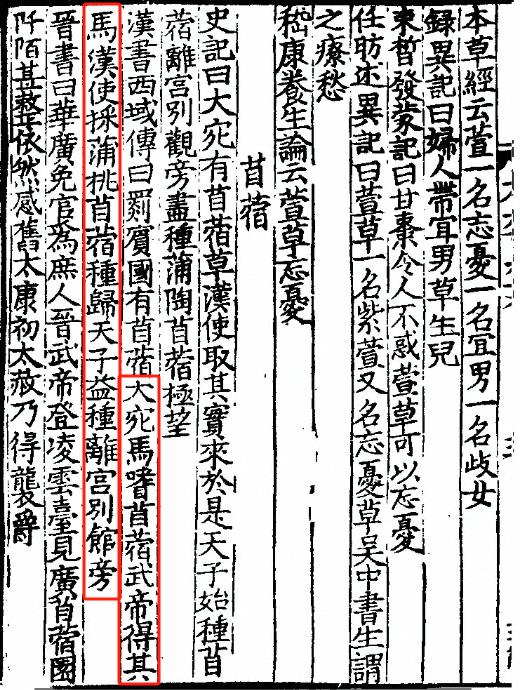 本草經云萱一名忘憂一名宜男一名歧女
録異記曰婦人帶宜男草生兒
束皙發蒙記曰甘棗令人不惑萱草可以忘憂
任昉述異記曰萱草一名紫萱又名忘憂草吳中書生謂
之療愁
嵇康養生論云萱草忘憂
苜蓿
史記曰大宛有苜蓿草漢使取其實來於是天子始種苜
蓿離宮別觀旁盡種蒲陶苜蓿極望
漢書西域傳曰罽賓國有苜蓿大宛馬嗜苜蓿武帝得其
馬漢使採蒲桃苜蓿種歸天子益種離宮別館旁
晉書曰華廣免官為庶人晉武帝登凌雲臺見廣苜蓿園
阡陌甚整依然感舊太康初太赦乃得襲爵